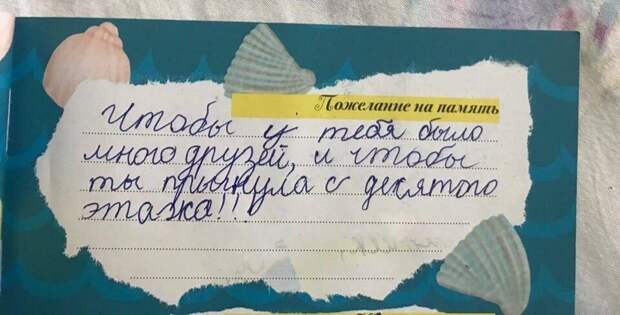 Пожелание на память
Чтобы у тебя было
много друзей, и чтобы
ты прыгнула с десятого
этажа!!!